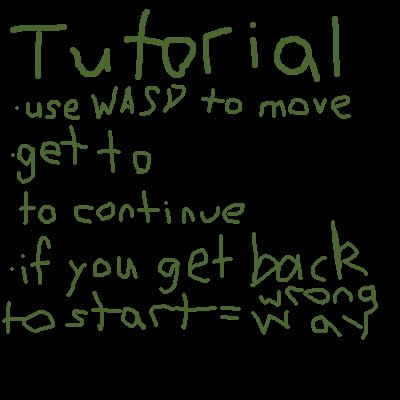 Tutorial
·use WASD to move
·get to
to continue
·if you get back
to start = wrong
way